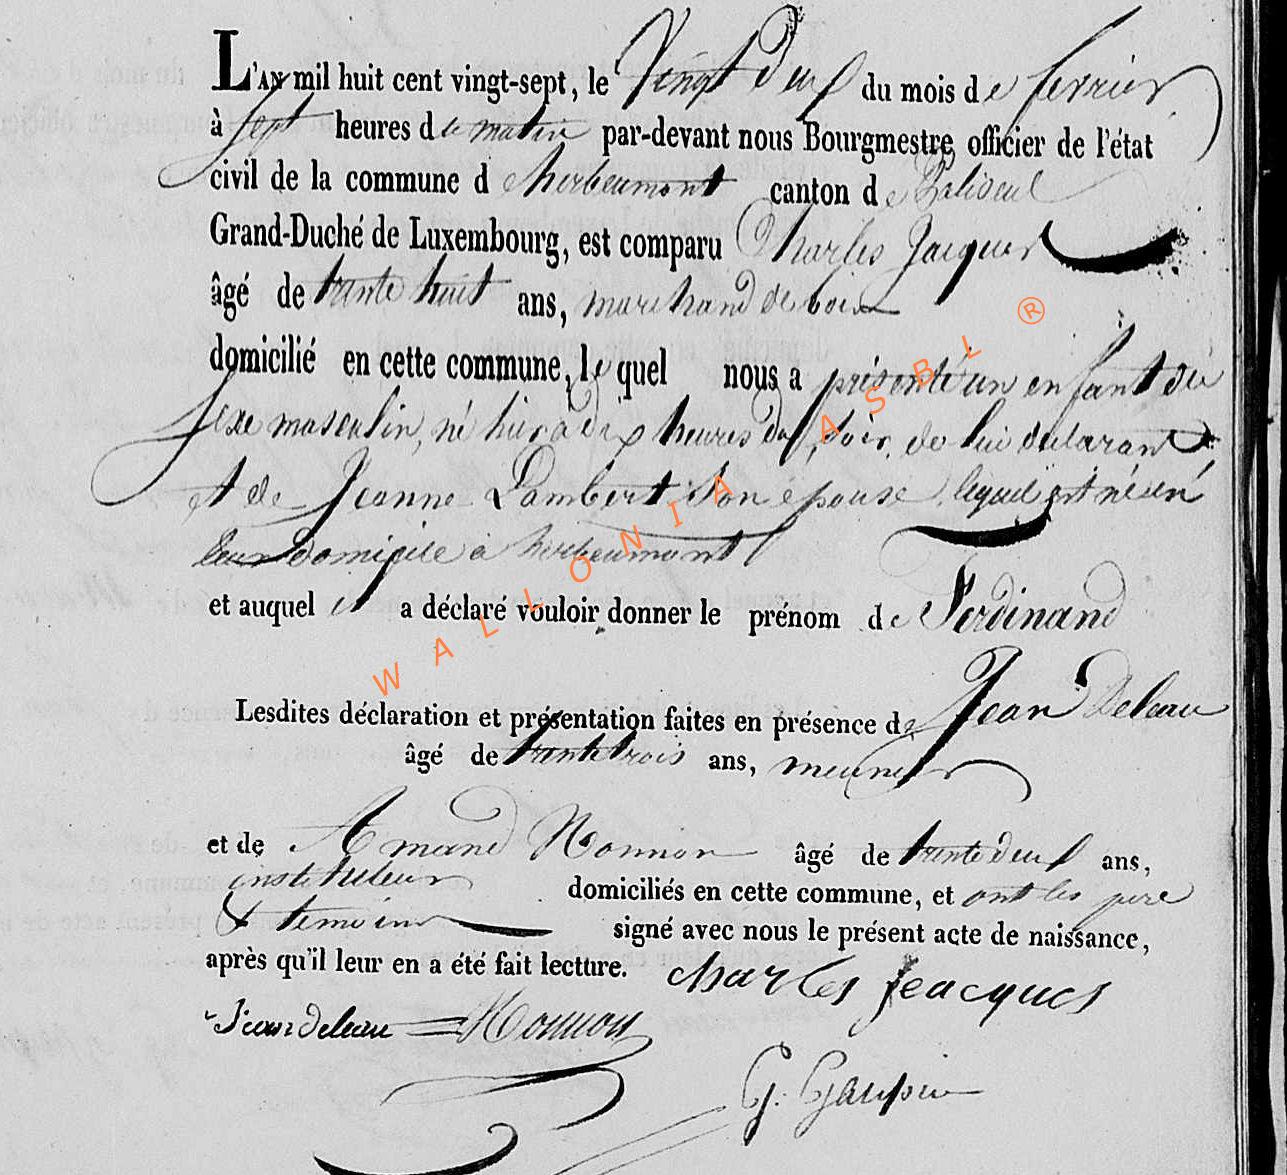 L'AN mil huit cent vingt-sept, le Vingt deux du mois de fevrier
à sept heures du matin par-devant nous Bourgmestre officier de l'état
civil de la commune d'herbeumont canton de Paliseul
Grand-Duché de Luxembourg, est comparu Charles Jacques
âgé de trente huit ans, marchand de bois
domicilié en cette commune, le quel nous a présenté un enfant du
sexe masculin, né hier à dix heures du soir, de lui déclarant
et de Jeanne Lambert son épouse, lequel est né en
leur domicile à herbeumont
et auquel il a déclaré vouloir donner le prénom de Ferdinand
Lesdites déclaration et présentation faites en présence de Jean Deleau
âgé de trente trois ans, meunier
et de Amand Nonnon âgé de trente deux ans,
instituteur domiciliés en cette commune, et ont les pere
& temoins signé avec nous le présent acte de naissance,
après qu'il leur en a été fait lecture. charles jeacques
Jean deleau Nonnon
G. Gaupin
WALLONIA ASBL ®